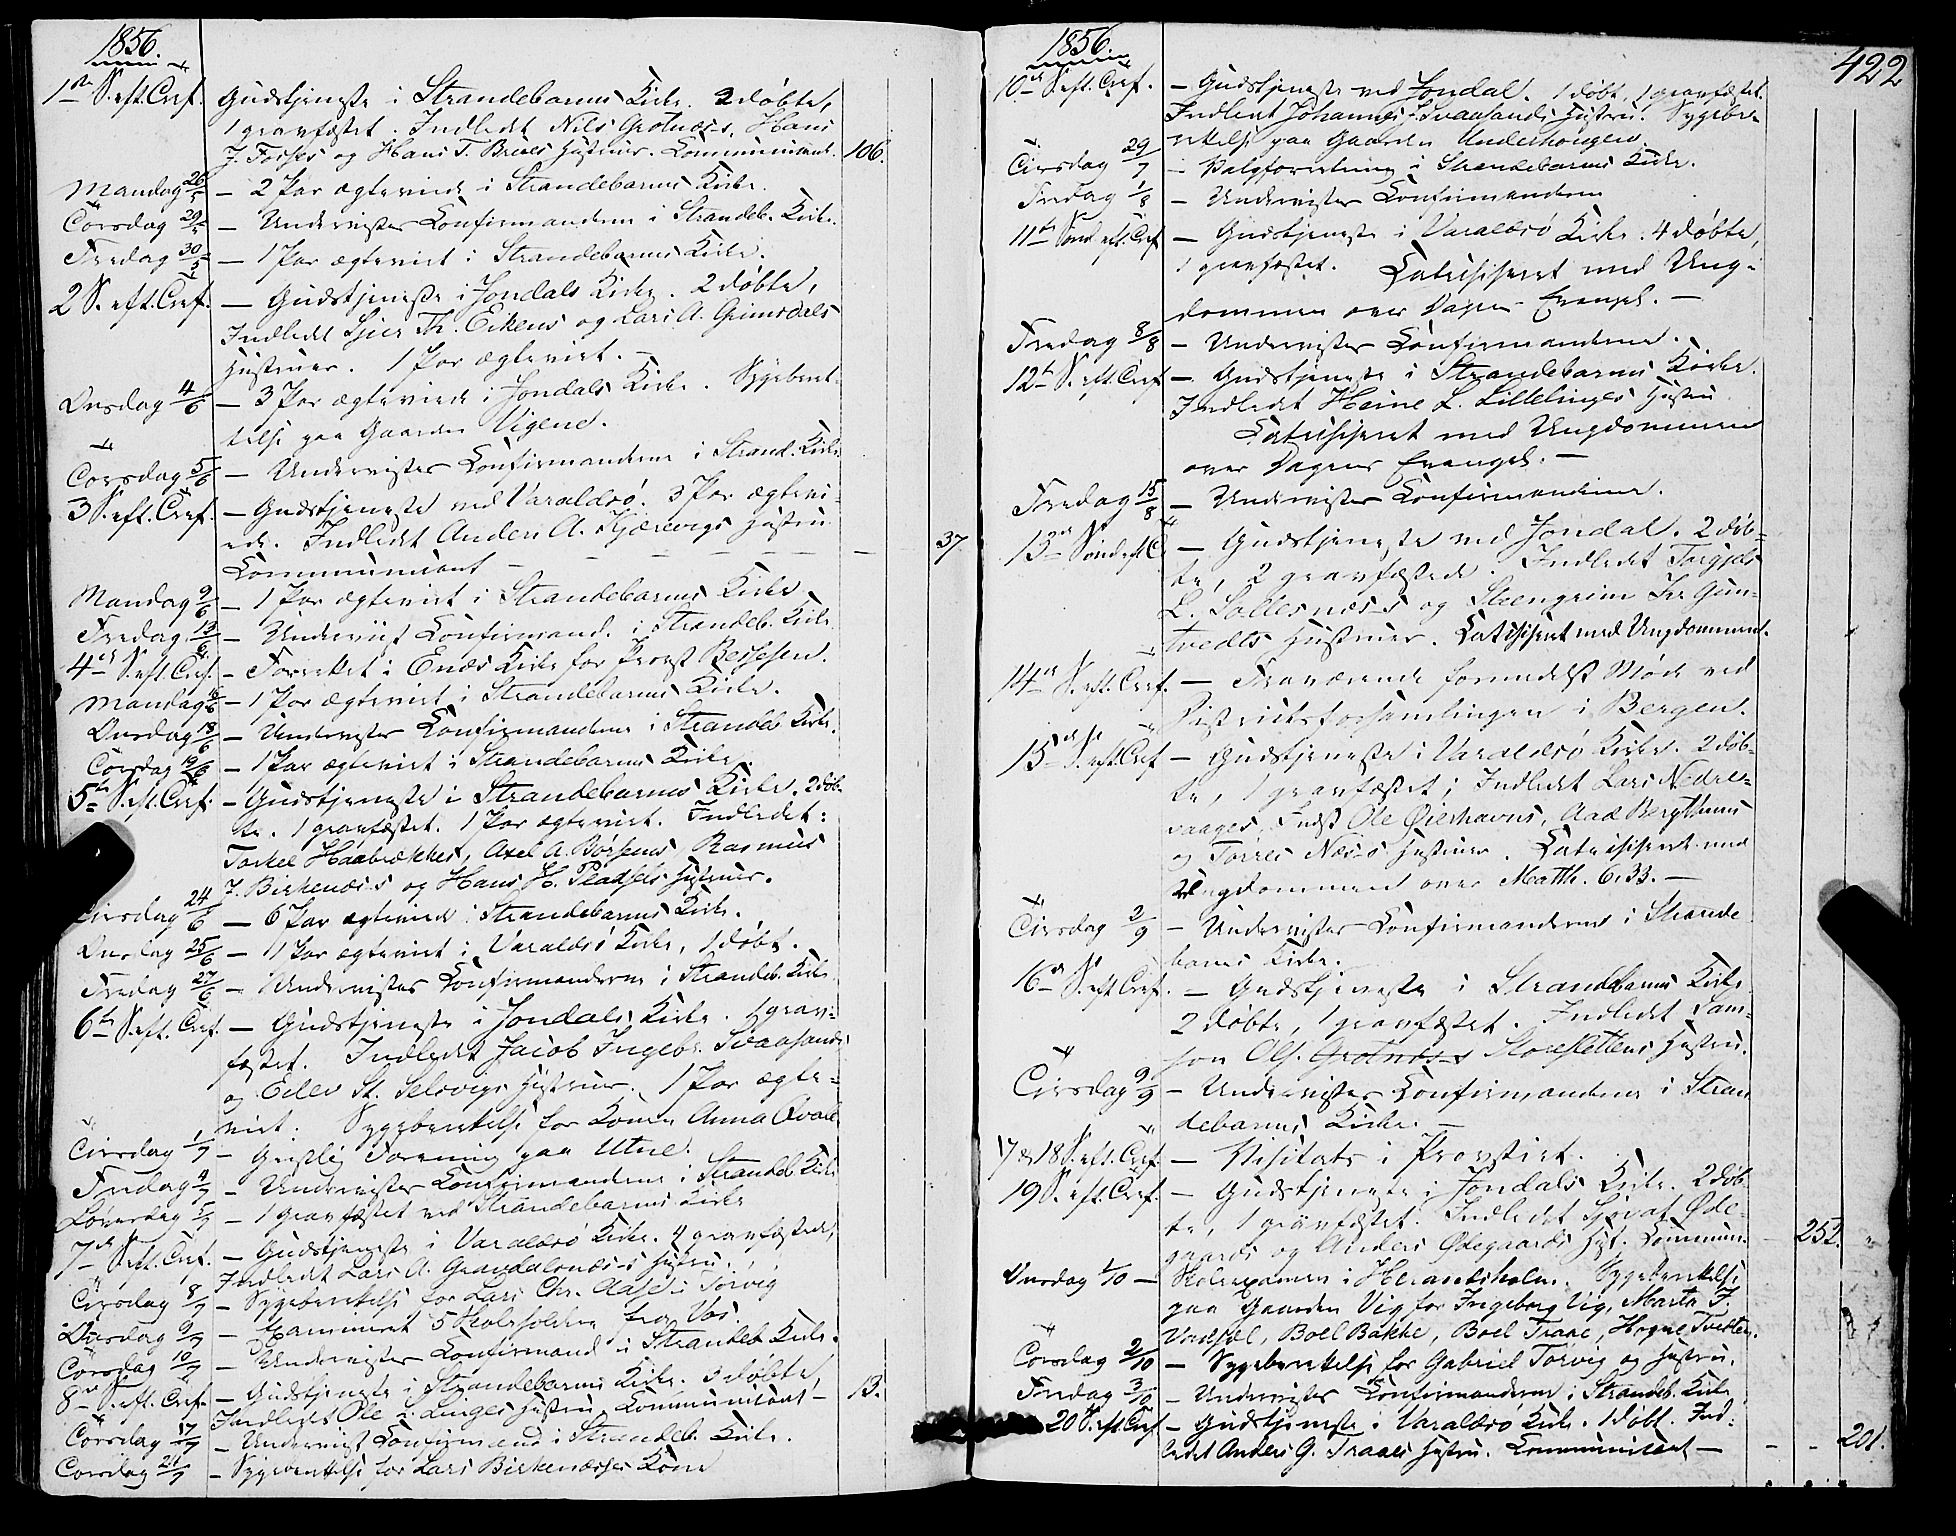 1856.
1ste S. eft. Tref. Gudstjeneste i Strandebarms Kirke. 2 døbte,
1 gravfæstet. Indledt Nils Grotnæss, Hans
J. Fosses og Hans T. Brues Hustruer. Communicant. 106.
Mandag 26/5 – 2 Par ægteviede i Strandebarms Kirke.
Torsdag 29/5 – Underviste Confirmanderne i Strandeb. Kirke.
Fredag 30/5 – 1 Par ægteviet i Strandebarms Kirke.
2 S. eft. Tref. – Gudstjeneste i Jondals Kirke. 2 døbte,
Indledt Sjur Th. Eikens og Lars A. Grimsdals
Hustruer. 1 Par ægteviet. –
Onsdag 4/6 – 3 Par ægteviede i Jondals Kirke. Sygeberet-
telse paa Gaarden Vigene.
Torsdag 5/6 – Underviste Confirmanderne i Strand. Kirke
3 S. eft. Tref. – Gudstjeneste ved Varaldsø. 3 Par ægtevi-
ede. Indledt Anders A. Kjærevigs Hustru
Communicant – – – – – – 37.
Mandag 9/6 – 1 Par ægteviet i Strandebarms Kirke
Fredag 13/6 – Underviist Confirmand. i Strandeb. Kirke
4de S. eft. Tref. – Forrettet i Enæs Kirke for Provst
Mandag 16/6 – 1 Par ægteviet i Strandebarms Kirke.
Onsdag 18/6 – Underviste Confirmanderne i Strandeb. Kirke.
Torsdag 19/6 – 1 Par ægteviet i Strandebarms Kirke.
5te S. eft. Tref. – Gudstjeneste i Strandebarms Kirke. 2 døb-
te. 1 gravfæstet. 1 Par ægteviet. Indledet:
Torkel Haabrækkes, Axel A. Børsems, Rasmus
J. Birkenæss og Hans H. Pladsets Hustruer.
Tirsdag 24/6 – 6 Par ægteviede i Strandebarms Kirke.
Onsdag 25/6 – 1 Par ægteviet i Varaldsø Kirke, 1 døbt.
Fredag 27/6 – Underviste Confirmanderne i Strandeb. Kirke
6te S. eft. Tref. – Gudstjeneste i Jondals Kirke. 1 grav-
fæstet. Indledet Jacob Ingebr. Svaasands
og Eilev St. Selsvigs Hustruer. 1 Par ægte-
viet. Sygeberettelse for Konen Anna Qvale
Tirsdag 1/7 – Geistlig Forening paa Utne.
Fredag 4/7 – Underviste Confirmanderne i Strandeb. Kirke
Løverdag 5/7 – 1 gravfæstet ved Strandebarms Kirke
7de S. eft. Tref. – Gudstjeneste i Varaldsø Kirke. 4 gravfæstede,
Indledt Lars A. Gravdalsnæss Hustru.
Tirsdag 8/7 – Sygeberettelse for Lars Chr. Aase i Tørvig
Onsdag 9/7 – Examineret 5 Skoleholdere fra Vos.
Torsdag 10/7 – Underviste Confirmand i Strandeb. Kirke.
8de S. eft. Tref. – Gudstjeneste i Strandebarms Kirke. 3 døbte,
Indledt Ole Linges Hustru. Communicant – 13.
Torsdag 17/7 – Underviist Confirmand i Strandeb. Kirke.
Torsdag 24/7 – Sygeberettelse for Lars Birkenæsses Kone
1856.
422
10de S. eft. Tref. – Gudstjeneste ved Jondal. 1 døbt. 1 gravfæstet.
Indledt Johannes J. Svaasands Hustru. Sygebe-
rettelse paa Gaarden Underhougen.
Tirsdag 29/7 – Valgforretning i Strandebarms Kirke.
Fredag 1/8 – Underviste Confirmanderne
11te Sønd. eft. Tref. – Gudstjeneste i Varaldsø Kirke. 4 døbte,
1 gravfæstet. Catechiseret med Ung-
dommen over Dagens Evangel. –
Fredag 8/8 – Underviste Confirmanderne.
12te S. eft. Tref. – Gudstjeneste i Strandebarms Kirke.
Indledt Heine L. Lillelinges Hustru
Catechiseret med Ungdommen
over Dagens Evangel. –
Fredag 15/8 – Underviste Confirmanderne.
13de Sønd. eft. T. – Gudstjeneste ved Jondal. 2 døb-
te, 2 gravfæstede. Indledet Torgjels
L. Sollesnæss og Steengrim Gun-
tvedts Hustruer. Catechiseret med Ungdommen.
14de S. eft. Tref. – Fraværende formedelst Møde ved
Districtsforsamlingen i Bergen.
15de S. eft. Tref. – Gudstjeneste i Varaldsø Kirke. 2 døb-
te, 1 gravfæstet; Indledet Lars Nedre-
vaages, Ole Øierhavns, Aad Bergthuns
og Torres Næss Hustruer. Catechiseret med
Ungdommen over Matth. 6, 33. –
Tirsdag 2/9 – Underviste Confirmanderne i Strande-
barms Kirke.
16de S. eft. Tref. – Gudstjeneste i Strandebarms Kirke
2 døbte, 1 gravfæstet. Indledet Sam-
son Ols. Grotnæss Storeslettens Hustru.
Tirsdag 9/9 – Underviste Confirmanderne i Stran-
debarms Kirke. –
17 & 18 S. eft. Tref. – Visitats i Provstiet.
19 S. eft. Tref. – Gudstjeneste i Jondals Kirke. 2 døb-
te, 1 gravfæstet. Indledet Sjovat Øde-
gaards og Anders Ødegaards Hust. Commun. – 252.
Onsdag 1/10 – Skoleexamen i Herandsholm. Sygeberettelse
paa Gaarden Vig for Ingeborg Vig, Marta J.
Boel Bakke, Boel Traae, Hogne Tveiten.
Torsdag 2/10 – Sygeberettelse for Gabriel Tørvig og Hustru.
Fredag 3/10 – Underviste Confirmanderne i Strandeb. Kirke
20 S. eft. Tref. – Gudstjeneste i Varaldsø Kirke. 1 døbt. Ind-
ledet Anders G. Traaes Hustru. Communicant – – – 201.